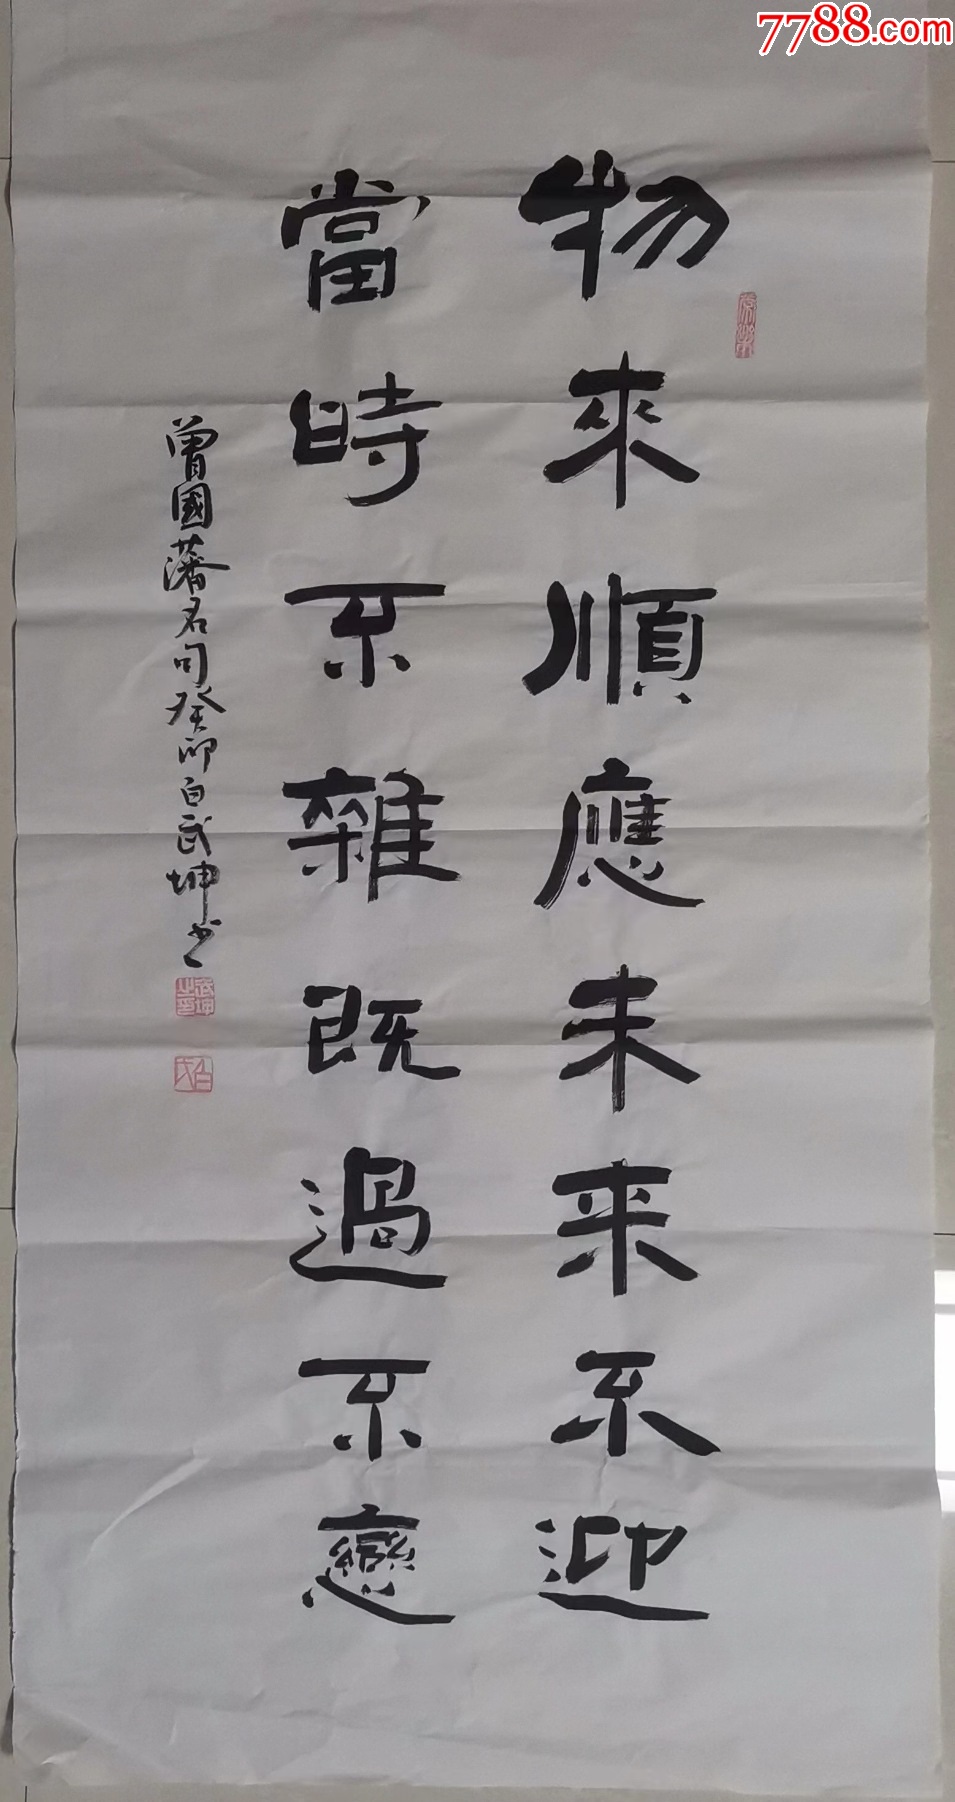 7788.com
物來順應未来不迎
當時不雜既過不戀
曾國藩名句癸卯白武坤书
武坤之印
白氏